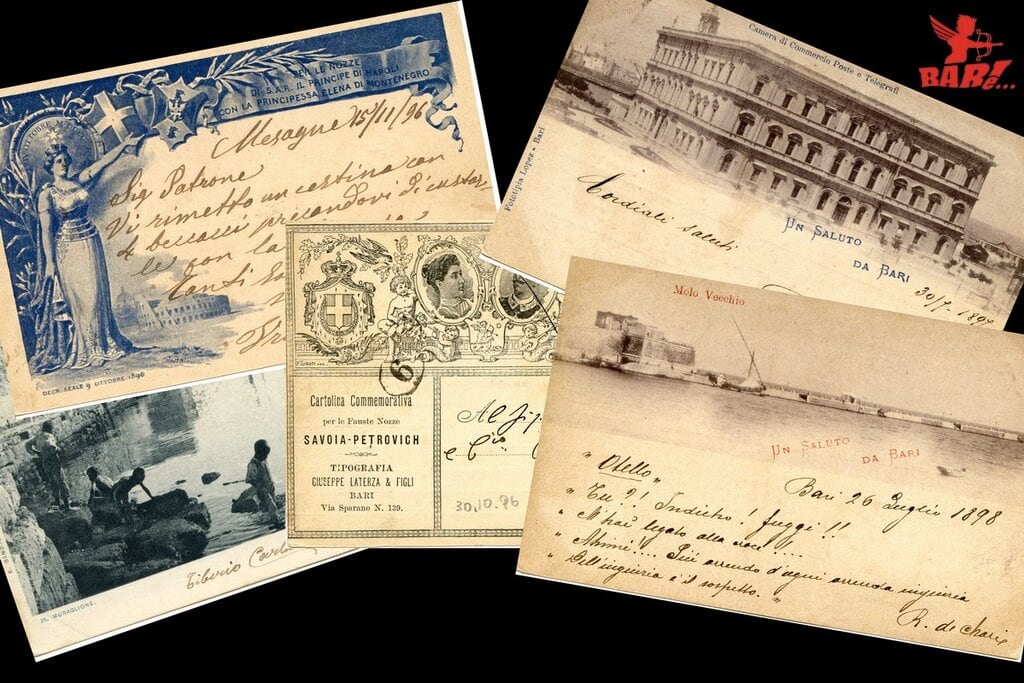 PER LE NOZZE
DI S.A.R. IL PRINCIPE DI NAPOLI
CON LA PRINCIPESSA ELENA DI MONTENEGRO
Mesagne 15/11/96
Sig Patrone
Vi rimetto un cestino con
4 beccacci pregandovi di
le con la
DECR. REALE 9 OTTOBRE 1896
Camera di Commercio Poste e Telegrafi
Fototipia Lopez - Bari
Cordiali saluti
UN SALUTO
DA BARI
30/7-1897
BARI...
6
Cartolina Commemorativa
per le Fauste Nozze
SAVOIA-PETROVICH
TIPOGRAFIA
GIUSEPPE LATERZA & FIGLI
BARI
Via Sparano N. 139.
Al
e
30.10.96
Molo Vecchio
UN SALUTO
DA BARI
" Otello "
Bari 26 Luglio 1898
" Tu?! Indietro! fuggi!!
" M'hai legato alla croce....
" Ahimè.... Più orrendo d'ogni orrenda ingiuria
" Dell'ingiuria è il sospetto. "
R. de
IL MURAGLIONE.
Tiberio